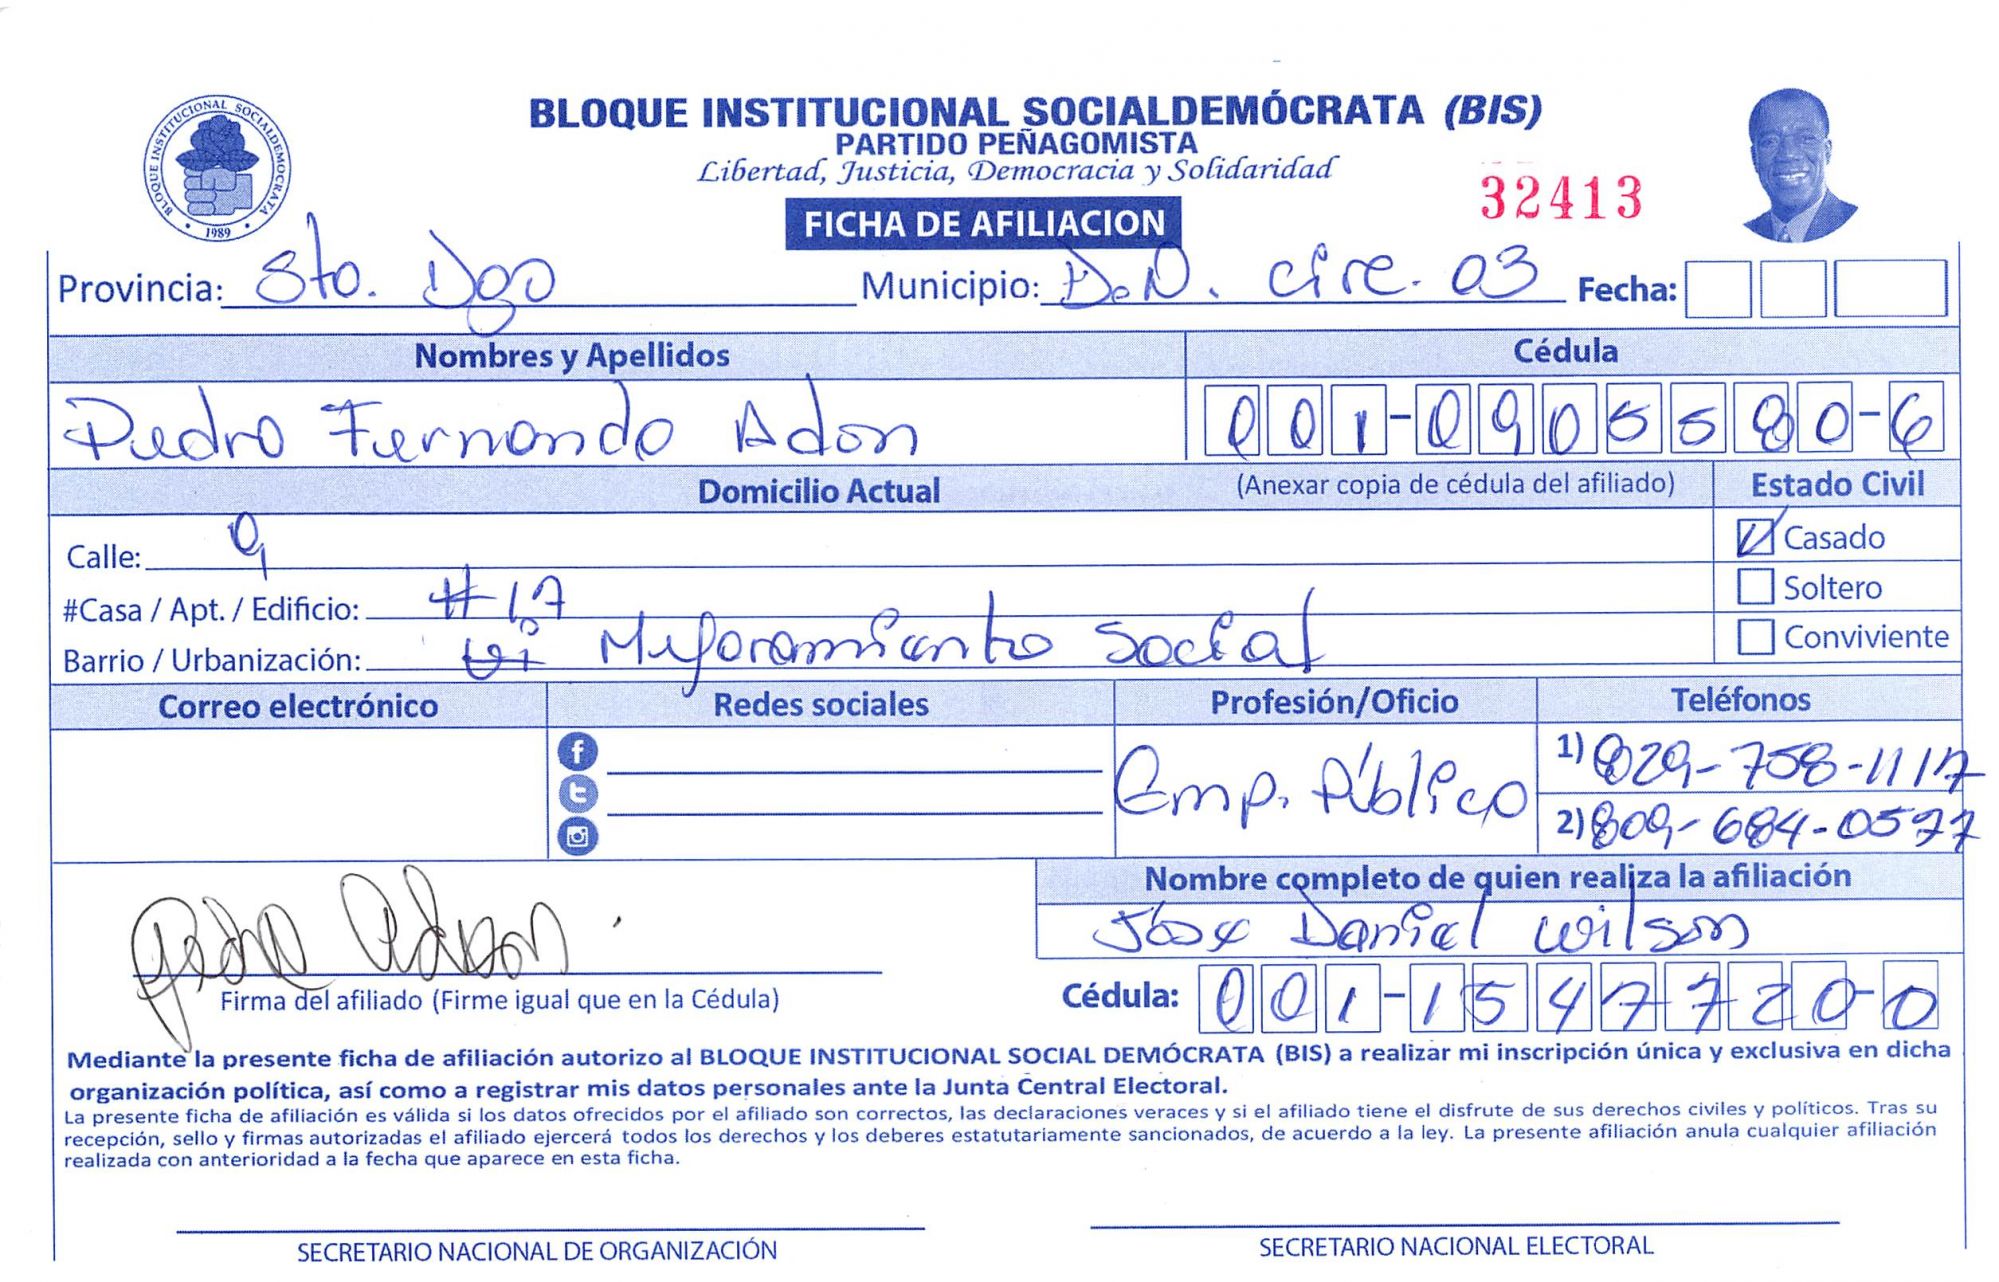 BLOQUE INSTITUCIONAL SOCIALDEMÓCRATA (BIS)
PARTIDO PEÑAGOMISTA
Libertad, Justicia, Democracia y Solidaridad
32413
FICHA DE AFILIACION
BLOQUE INSTITUCIONAL SOCIALDEMOCRATA
1989
Provincia: Sto. Dgo Municipio: D.N. circ. 03 Fecha:
Nombres y Apellidos Cédula
Pedro Fernando Adon 001-0905580-6
Domicilio Actual (Anexar copia de cédula del afiliado) Estado Civil
Calle: 9 Casado
#Casa / Apt. / Edificio: #17 Soltero
Barrio / Urbanización: Mejoramiento Social Conviviente
Correo electrónico Redes sociales Profesión/Oficio Teléfonos
Emp. Público 1) 829-758-1117
2) 809-684-0577
Nombre completo de quien realiza la afiliación
Jose Daniel Wilson
Pedro Adon
Firma del afiliado (Firme igual que en la Cédula) Cédula: 001-1547720-0
Mediante la presente ficha de afiliación autorizo al BLOQUE INSTITUCIONAL SOCIAL DEMÓCRATA (BIS) a realizar mi inscripción única y exclusiva en dicha
organización política, así como a registrar mis datos personales ante la Junta Central Electoral.
La presente ficha de afiliación es válida si los datos ofrecidos por el afiliado son correctos, las declaraciones veraces y si el afiliado tiene el disfrute de sus derechos civiles y políticos. Tras su
recepción, sello y firmas autorizadas el afiliado ejercerá todos los derechos y los deberes estatutariamente sancionados, de acuerdo a la ley. La presente afiliación anula cualquier afiliación
realizada con anterioridad a la fecha que aparece en esta ficha.
SECRETARIO NACIONAL DE ORGANIZACIÓN SECRETARIO NACIONAL ELECTORAL